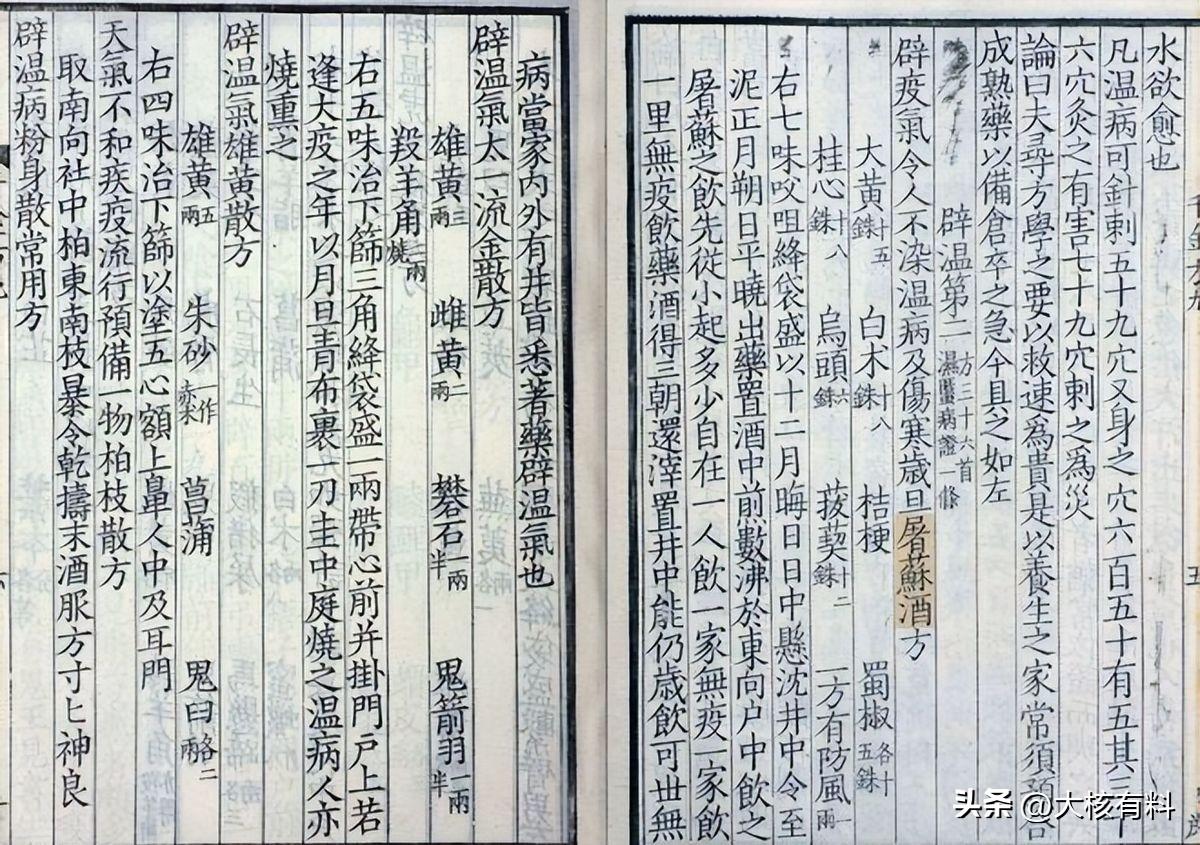 水欲愈也
凡温病可針刺五十九穴又身之穴六百五十有五其三十
六穴灸之有害七十九穴刺之為災
論曰夫尋方學之要以救速為貴是以養生之家常須預合
成熟藥以備倉卒之急今具之如左
辟温第二 方三十六首 濕䘌病證一條
辟疫氣令人不染温病及傷寒歲旦屠蘇酒方
大黄十五銖 白术十八銖 桔梗 蜀椒各十五銖
桂心十八銖 烏頭六銖 菝葜十二銖 一方有防風一兩
右七味㕮咀絳袋盛以十二月晦日日中懸沈井中令至
泥正月朔日平曉出藥置酒中煎數沸於東向户中飲之
屠蘇之飲先從小起多少自在一人飲一家無疫一家飲
一里無疫飲藥酒得三朝還滓置井中能仍歲飲可世無
病當家内外有井皆悉著藥辟温氣也
辟温氣太一流金散方
雄黄三兩 雌黄二兩 礬石一兩半 鬼箭羽一兩半
羖羊角燒二兩
右五味治下篩三角絳袋盛一兩帶心前并掛門户上若
逢大疫之年以月旦青布裹一刀圭中庭燒之温病人亦
燒熏之
辟温氣雄黄散方
雄黄五兩 朱砂一作赤术 菖蒲 鬼臼各二兩
右四味治下篩以塗五心額上鼻人中及耳門
天氣不和疾疫流行預備一物柏枝散方
取南向社中柏東南枝暴令乾擣末酒服方寸匕神良
辟温病粉身散常用方
头条 @大核有料